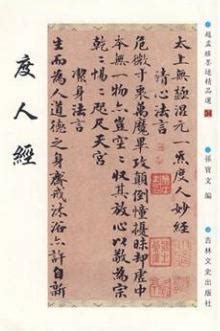 趙孟頫墨迹精品選
孫寶文 編
吉林文史出版社
太上無極混元一炁度人妙經
清心法言
危微寸衷萬魔畢攻顛倒憧擾昧却虛中
本無一物亦豈空〻收其放心以敬為宗
乾〻惕〻咫尺天宮
潔身法言
生而為人道德之身齋戒沐浴亦許自新
度人經